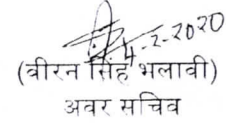 4-2-2020
(वीरन सिंह भलावी)
अवर सचिव